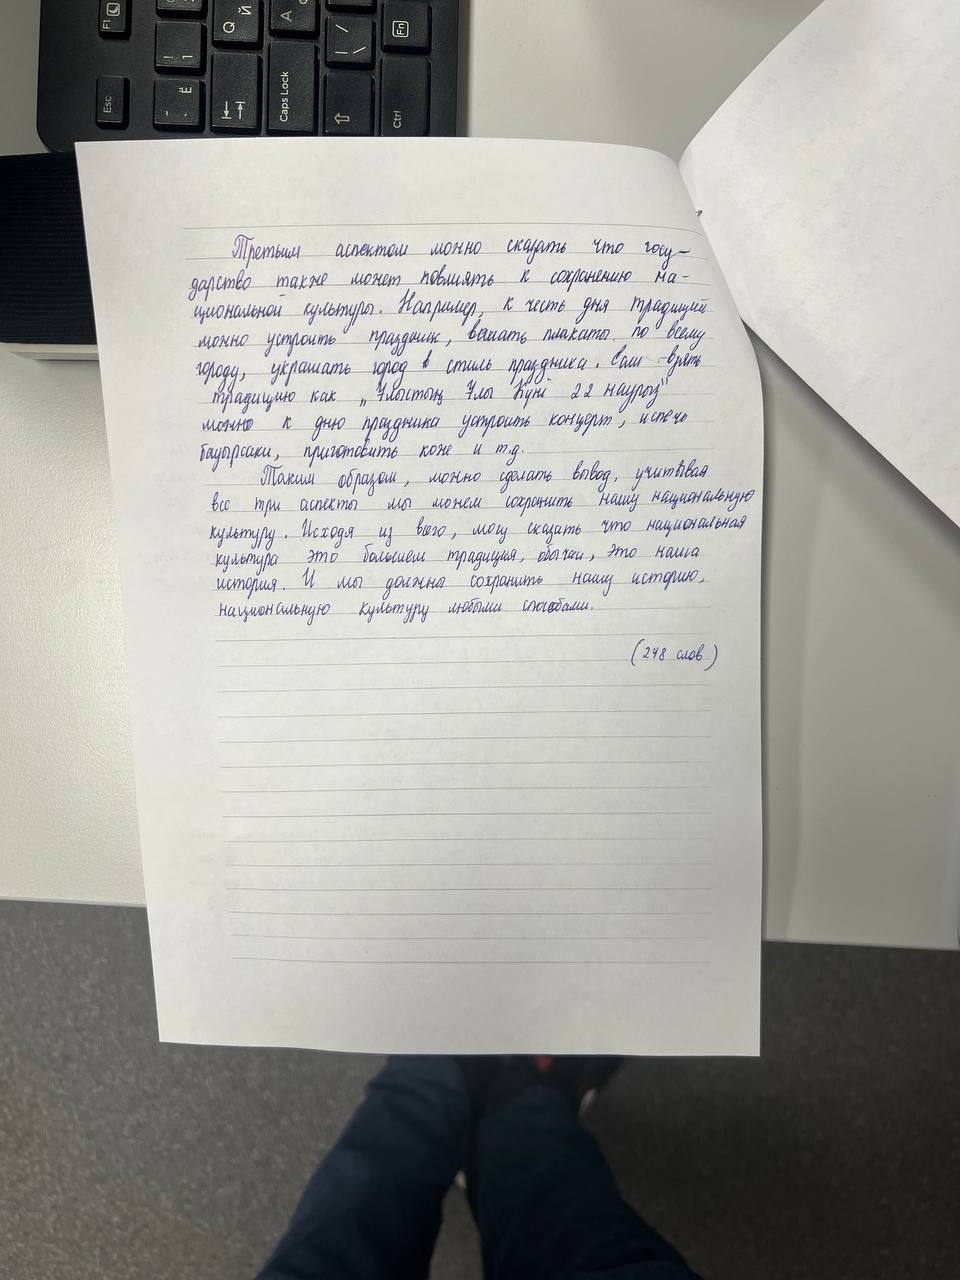 Esc
F1
Q Й
A
Caps Lock
Ctrl
Fn
Третьим аспектом можно сказать что госу-
дарство также может повлиять к сохранению на-
циональной культуры. Например, к честь дня традиций
можно устроить праздник, вешать плакаты по всему
городу, украшать город в стиль праздника. Если взять
традицию как „Ұлыстың Ұлы Күні 22 наурыз"
можно к дню праздника устроить концерт, испечь
бауырсаки, приготовить коже и т.д.
Таким образом, можно сделать вывод, учитывая
все три аспекты мы можем сохранить нашу национальную
культуру. Исходя из всего, могу сказать что национальная
культура это традиция, обычаи, это наша
история. И мы должны сохранить нашу историю,
национальную культуру любыми способами.
(248 слов)